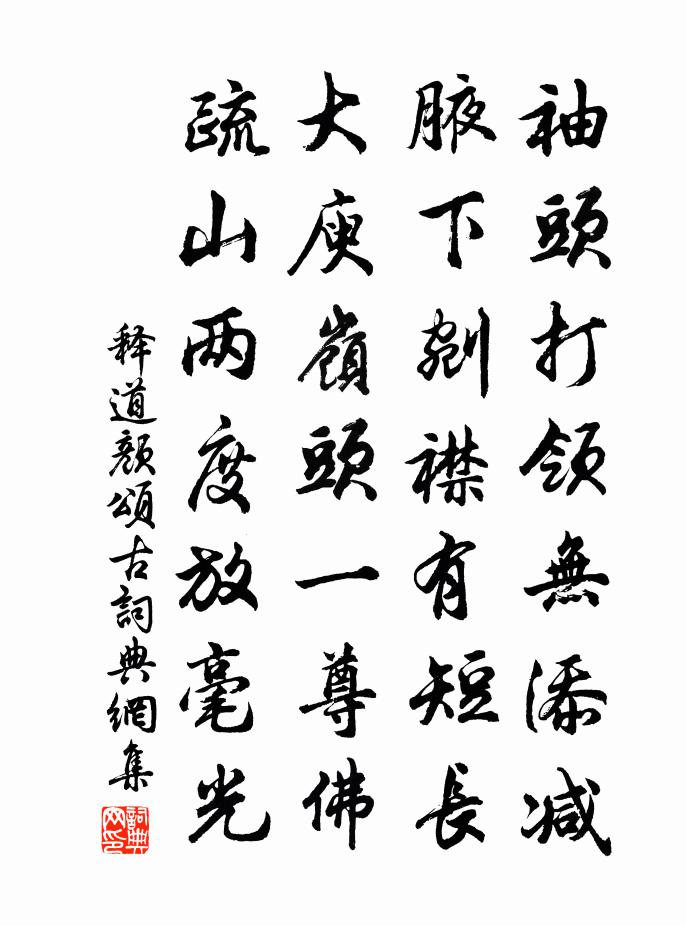 袖頭打領無添減
腋下剜襟有短長
大庾嶺頭一尊佛
疏山两度放毫光
释道顏頌古詞典網集
詞典网印